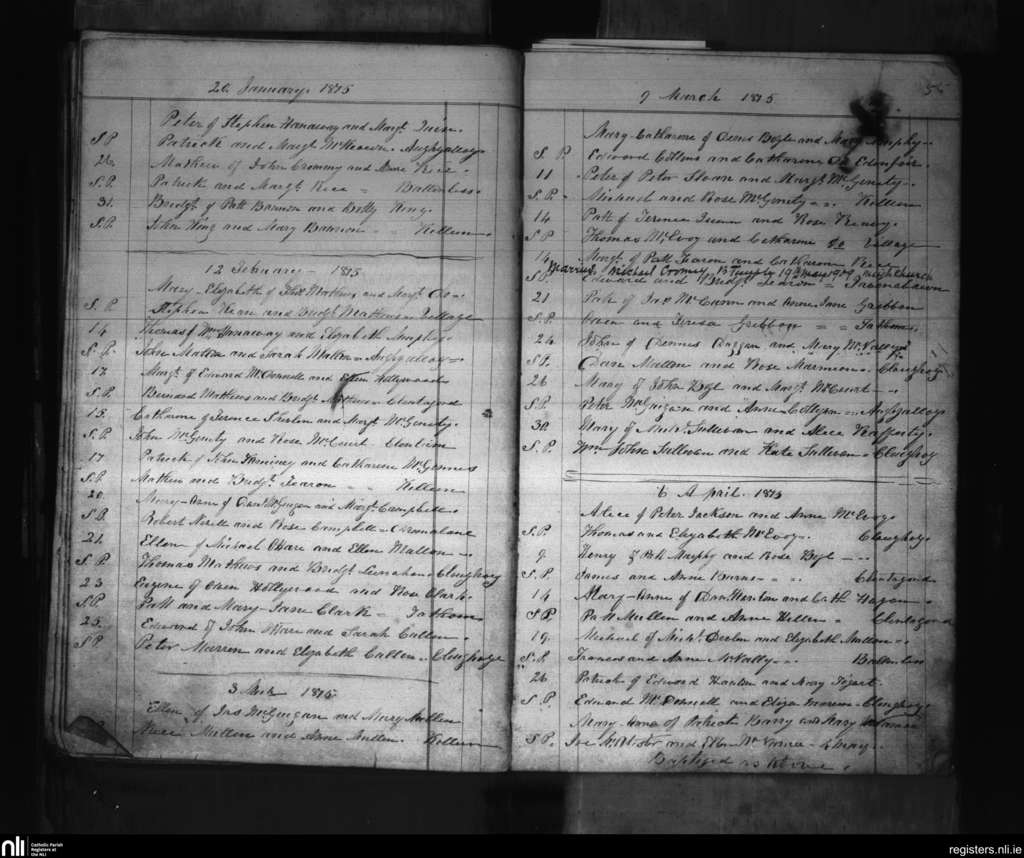 20 January 1875
Peter of Stephen Hanaway and Margt. Quin.
S.P. Patrick and Margt. McKeown. Aughyalloy
26. Mathew of John Crommy and Anne Rice.
S.P. Patrick and Margt. Rice = Ballinless
31. Bridgt. of Patt Bannon and Betty King.
S.P. John King and Mary Bannon Killeen
12 February 1875
Mary Elizabeth of Mathews and Margt.
S.P. Stephen Kean and Bridgt. Mathews Village
14. Thomas of Wm. Hanaway and Elizabeth Murphy
S.P. John Mallon and Sarah Mallon = Aughyalloy
17. Margt. of Edward McDonnell and Ellen Hollywood
S.P. Bernard Mathews and Bridgt. Mathews = Clontagord
15. Catharine of Terence and Margt. McGenity.
S.P. John McGenity and Rose McCourt.
17 Patrick of John and Catharine McGinnes
S.P. Mathew and Bridgt. Fearon Killeen
20. Mary Anne of Owen McGuigan and Margt. Campbell
S.P. Robert and Rose Campbell =
21. Ellen of Michael O'Hare and Ellen Mallon
S.P. Thomas Mathews and Bridgt. Lenahan = Cloughoy
23 Eugene of Owen Hollywood and Rose Clark.
S.P. Patt and Mary Jane Clark = Fathom
25. Edward of John O'Hare and Sarah Callen.
S.P. Peter Murren and Elizabeth Callen. Cloughoge
3 1875
Ellen of Jas McGuigan and Mary Mullen
Alice Mullen and Anne Mullen. Killeen
54
9 March 1875
Mary Catharine of Denis Boyle and Mary Murphy.
S.P. Edward Collins and Catharine Do Edenfore.
11 Peter of Peter Sloan and Margt. McGenity.
S.P. Michael and Rose McGenity Killeen
14 Patt of Terence Quinn and Rose Keney
S.P. Thomas McEvoy and Catharine Do Village
14 Margt. of Patt Fearon and Catharine
Married Michael Cooney 19th May 1909 church
S.P. Edward and Bridgt. Fearon =
21 Patt of Jas McCann and Anne Jane Gribbon
S.P. Owen and Teresa Gribbon = = Fathom
24 John of Dennis Duggan and Mary McNally
S.P. Owen Mallon and Rose Marmion. Cloughoy
26 Mary of John Boyle and Margt. McCourt
S.P. Peter McGuigan and Anne = Aughyalloy
30 Mary of Michl. Sullivan and Alice Rafferty.
S.P. Wm John Sullivan and Kate Sullivan = Cloughoy
6 April. 1875
Alice of Peter Jackson and Anne McEvoy.
S.P. Thomas and Elizabeth McEvoy. Cloughoy
9. Henry of Patt Murphy and Rose Boyle
S.P. James and Anne Burns Clontagord
14 Mary Anne of Danl. and Cath Hagan
S.P. Patt Mullen and Anne = Clontagord
19. Michael of Michl. and Elizabeth Mullen
S.P. Francis and Anne McNally Ballinless
26 Patrick of Edward Hanlon and Mary
S.P. Edward McDonnell and Eliza = Cloughoy
Mary Anne of Patrick Barry and Mary
S.P. and Ellen McEntee 4 May.
Baptized as above.
nli Catholic Parish Registers at the NLI
registers.nli.ie